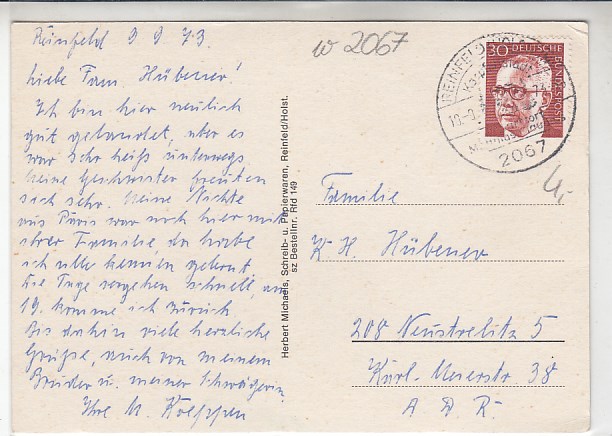 Reinfeld 9 9 73.
w 2067
Liebe Fam Hübener!
Ich bin hier neulich
gut gelandet, aber es
war sehr heiß unterwegs
meine Geschwister freuten
sich sehr. Meine Nichte
aus Paris war noch hier mit
ihrer Familie da habe
ich alle kennen gelernt
Die Tage vergehen schnell, am
19. komme ich zurück
Bis dahin viele herzliche
Grüße, auch von meinem
Bruder u. meiner Schwägerin
Ihre M. Koeppen
Herbert Michaels, Schreib- u. Papierwaren, Reinfeld/Holst.
sz Bestellnr. Rfd 149
30 DEUTSCHE BUNDESPOST
REINFELD
2067
4,-
Familie
K H. Hübener
208 Neustrelitz 5
Karl-Meierstr 38
A D R.